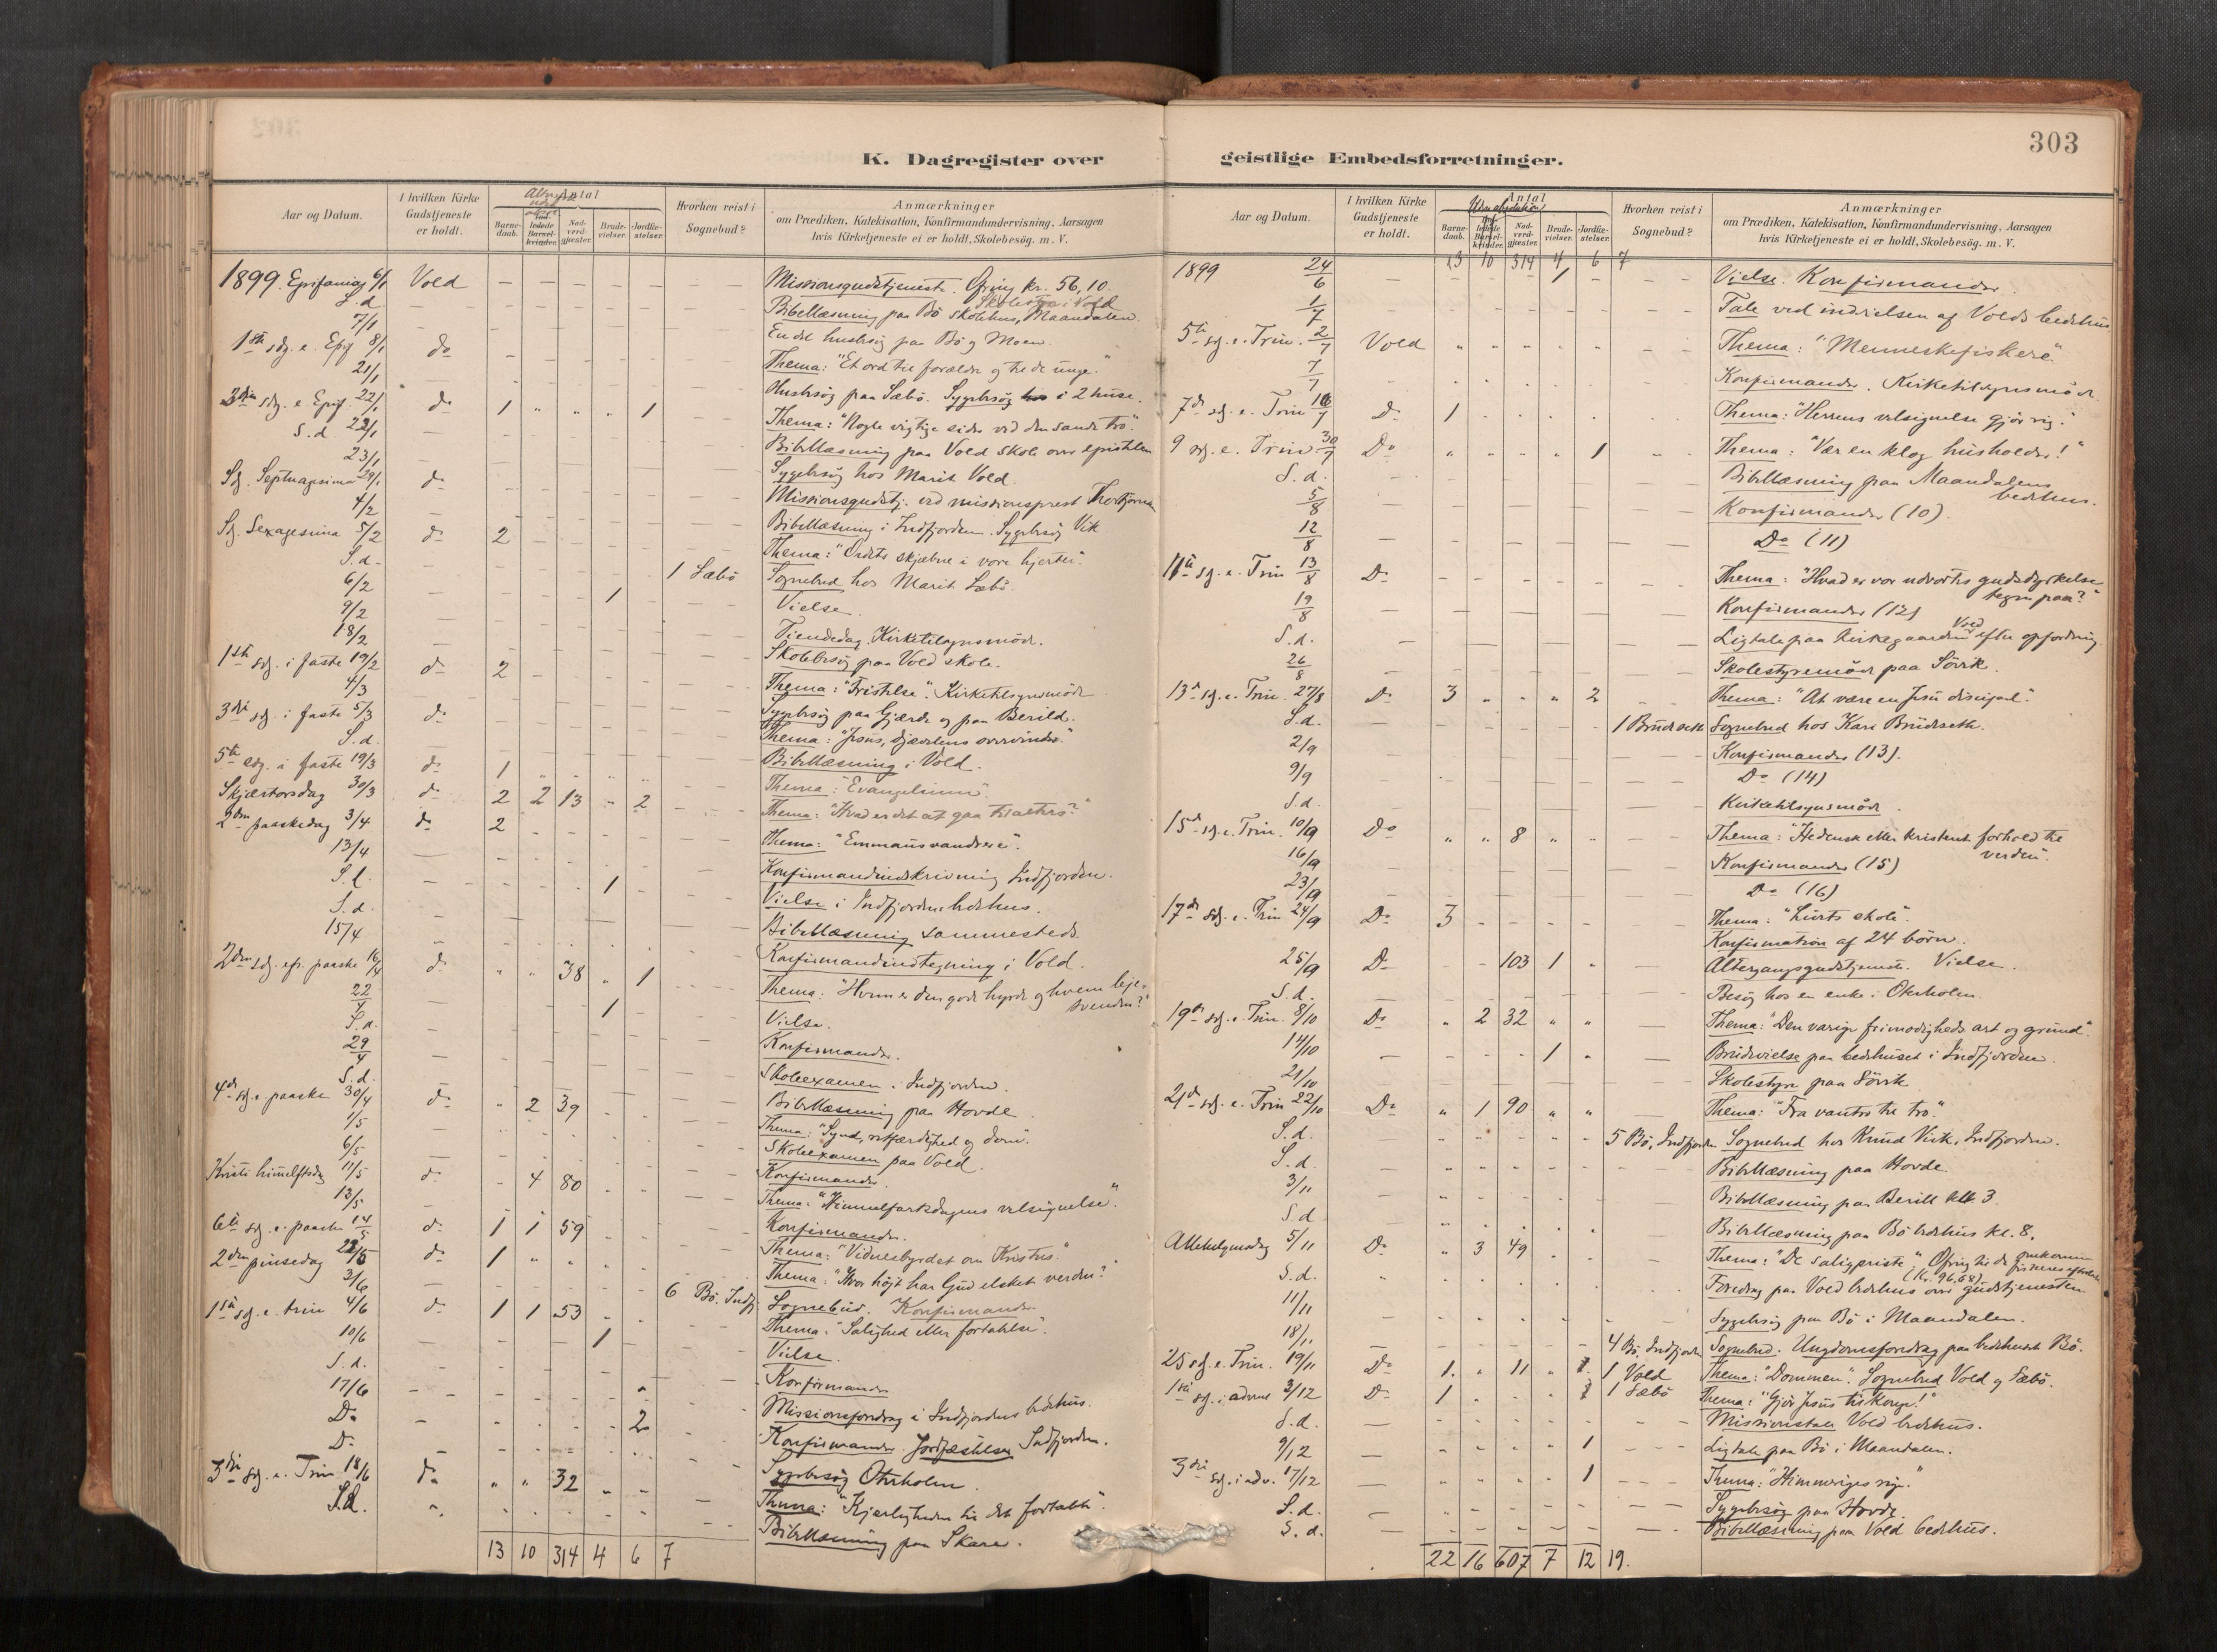 303
K. Dagregister over geistlige Embedsforretninger.
Aar og Datum.
I hvilken Kirke Gudstjeneste er holdt.
Antal
Barnedaab.
Nadverdgjester.
Brudevielser.
Jordfæstelser.
Hvorhen reist i Sognebud?
Anmærkninger
om Prædiken, Katekisation, Konfirmandundervisning, Aarsagen
hvis Kirketjeneste ei er holdt, Skolebesög. m. V.
1899. Epifania 6/1 Vold — Missionsgudstjeneste. Ofring kr. 56,10.
S.d. — Bibellæsning paa Bö skolehus, Maandalen.
7/1 — En del husbesög paa Bö og Moen.
1ste sdg. e. Epif 8/1 do — Thema: "Et ord til forældre og til de unge."
21/1 — Husbesög paa Sæbö. Sygebesög i 2 huse.
3die sdg. e. Epif. 22/1 do 1 " " " 1 Thema: "Nogle vigtige sider ved den sande tro."
S.d 22/1 — Bibellæsning paa Vold skole over epistelen
23/1 — Sygebesög hos Marit Vold.
Sdg. Septuagesima 29/1 do — Missionsgudstj. ved missionsprest
4/2 — Bibellæsning i Indfjorden. Sygebesög Vik
Sdg. Sexagesima 5/2 do 2 Thema: "Ordets skjæbne i vore hjerter."
S.d. — 1 Sæbö Sognebud hos Marit Sæbö.
6/2 — 1 Vielse.
9/2 — Tiendedag. Kirketilsynsmöde.
18/2 — Skolebesög paa Vold skole.
1ste sdg. i faste 19/2 do 2 Thema: "Fristelse". Kirketilsynsmöde
4/3 — Sygebesög paa Gjærde og paa Berild.
3die sdg. i faste 5/3 do Thema: "Jesus, djævelens overvinder."
S.d. — Bibellæsning i Vold.
5te sdg. i faste 19/3 do 1 Thema: "Evangelium".
Skjærtorsdag 30/3 do 2 2 13 " 2 Thema: "Hvad er det at gaa til alters?"
2den paaskedag 3/4 do 2 Thema: "Emmausvandrere".
13/4 — Konfirmandindskrivning Indfjorden.
S.d. — 1 Vielse i Indfjordens bedehus.
S.d. — Bibellæsning sammesteds
15/4 — Konfirmandindtegning i Vold.
2den sdg. eft. paaske 16/4 do " " 38 " 1 Thema: "Hvem er den gode hyrde og hvem lejesvenden?"
22/4 — 1 Vielse.
S.d. — Konfirmander.
29/4 — Skoleexamen i Indfjorden.
S.d. — Bibellæsning paa Hovde.
4de sdg. e paaske 30/4 do " 2 39 Thema: "Synd, retfærdighed og dom".
1/5 — Skoleexamen paa Vold.
6/5 — Konfirmander.
Kristi himmelftsdg 11/5 do 4 80 Thema: "Himmelfartsdagens velsignelse".
13/5 — Konfirmander.
6te sdg. e. paaske 14/5 do 1 1 59 Thema: "Vidnesbyrdet om Kristus."
2den pinsedag 22/5 do 1 Thema: "Hvor höjt har Gud elsket verden?"
3/6 — 6 Bö. Indfj. Sognebud. Konfirmander
1ste sdg. e. trin 4/6 do 1 1 53 Thema: "Salighed eller fortabelse".
10/6 — 1 Vielse.
S.d. — Konfirmander
17/6 — Missionsforedrag i Indfjordens bedehus.
Do — 2 Konfirmander. Jordfæstelser Indfjorden.
Do — Sygebesög Oterholm.
3die sdg. e. Trin 18/6 do " " 32 Thema: "Kjærligheden til det fortabte".
S.d. — Bibellæsning paa Skare.
13 10 314 4 6 7
Aar og Datum.
I hvilken Kirke Gudstjeneste er holdt.
Antal
Barnedaab.
Nadverdgjester.
Brudevielser.
Jordfæstelser.
Hvorhen reist i Sognebud?
Anmærkninger
om Prædiken, Katekisation, Konfirmandundervisning, Aarsagen
hvis Kirketjeneste ei er holdt, Skolebesög. m. V.
13 10 314 4 6 7
1899 24/6 — 1 Vielse. Konfirmander.
1/7 — Tale ved indvielsen af Volds bedehus
5te sdg. e. Trin. 2/7 Vold Thema: "Menneskefiskere".
7/7 — Konfirmander. Kirketilsynsmöde
7de sdg. e. Trin 16/7 Do 1 Thema: "Herrens velsignelse gjör rig."
9 sdg. e. Trin 30/7 Do " " " " 1 Thema: "Vær en klog husholder!"
S.d. — Bibellæsning paa Maandalens bedehus.
5/8 — Konfirmander (10).
12/8 — Do (11)
11te sdg. e. Trin 13/8 Do Thema: "Hvad er vor udvortes gudsdyrkelse tegn paa?"
19/8 — Konfirmander (12)
S.d. — Ligtale paa kirkegaarden Vold efter opfordring
26/8 — Skolestyremöde paa Sövik.
13de sdg. e. Trin. 27/8 Do 3 " " " 2 Thema: "At være en Jesu discipel."
S.d. — 1 Brudeseth Sognebud hos Kari Brudeseth.
2/9 — Konfirmander (13).
9/9 — Do (14)
S.d. — Kirketilsynsmöde.
15de sdg. e. Trin. 10/9 Do " " 8 " " Thema: "Hedensk eller kristent forhold til verden".
16/9 — Konfirmander (15)
23/9 — Do (16)
17de sdg. e. Trin 24/9 Do 3 Thema: "Livets skole".
Konfirmation af 24 börn.
25/9 Do 103 1 Altergangsgudstjeneste. Vielse.
S.d. — Besög hos en enke i Oterholm.
19de sdg. e. Trin. 8/10 Do " 2 32 " " Thema: "Den varige frimodigheds art og grund".
14/10 — 1 Brudevielse paa bedehuset i Indfjorden.
21/10 — Skolestyre paa Sövik
21de sdg. e. Trin 22/10 Do " 1 90 " " Thema: "Fra vantro til tro."
S.d. 5 Bö, Indfjorden Sognebud hos Knud Vik, Indfjorden.
S.d. — Bibellæsning paa Hovde
3/11 — Bibellæsning paa Berill kl 3.
S.d — Bibellæsning paa Bö bedehus kl. 8.
Allehelgensdag 5/11 Do " 3 49 Thema: "De saligpriste". Ofring til de omkomne fiskeres efterladte (Kr. 96,68)
S.d. Foredrag paa Vold bedehus over gudstjenesten
11/11 Sygebesög paa Bö i Maandalen.
18/11 — 4 Bö. Indfjorden Sognebud. Ungdomsforedrag paa bedehuset Bö.
25 sdg. e. Trin. 19/11 Do 1 " 11 " 1 1 Vold Thema: "Dommen". Sognebud Vold og Sæbö.
1ste sdg. i advent 3/12 Do 1 1 1 Sæbö Thema: "Gjör Jesus til konge!"
S.d. — Missionstale Vold bedehus.
9/12 — 1 Ligtale paa Bö i Maandalen.
3die sdg. i adv. 17/12 1 Thema: "Himmeriges rige."
S.d. — Sygebesög paa Hovde.
S.d. — Bibellæsning paa Vold bedehus.
22 16 607 7 12 19.